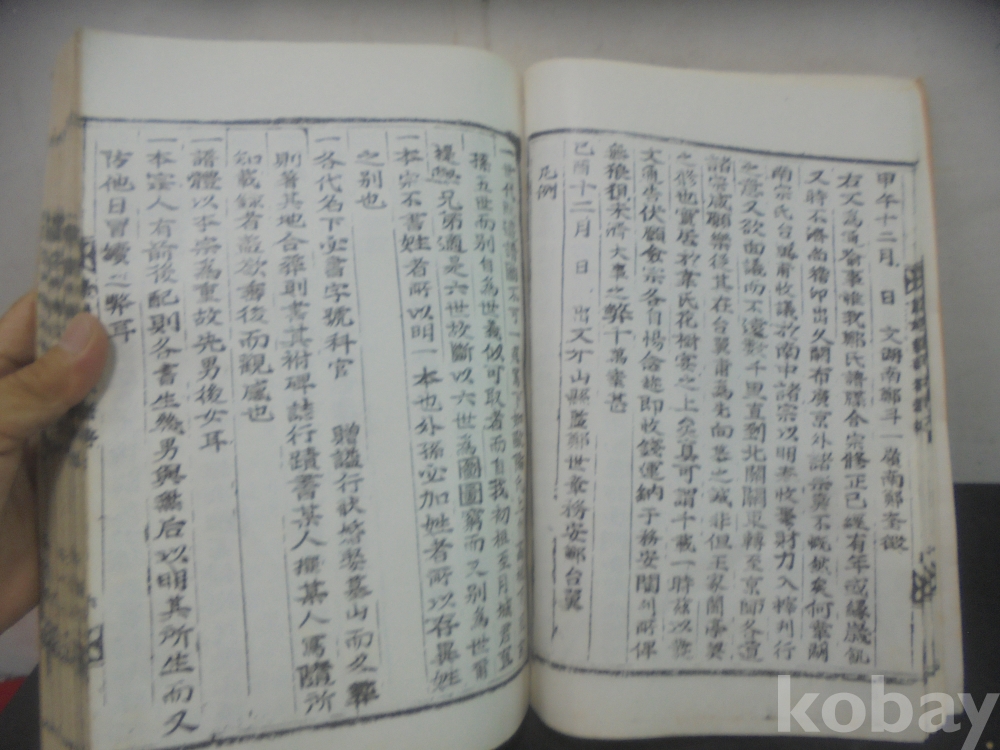 甲午十二月 日 文 湖南鄭斗一 嶺南鄭
右文為通諭事惟我鄭氏譜牒合宗修正已經有年或緣歲飢
又時不濟尚稽印出久闕布廣京外諸宗莫不慨歎矣何幸關
南宗氏台翼甫收議於南中諸宗以明年收棗財力入梓刊行
之意又欲面議而不遠數千里直到北關關東轉至京師各道
諸宗咸願樂從其在台翼甫為先向墓之誠非但王家蘭亭契
之修也實居於韋氏花樹宴之上矣真可謂千載一時茲以發
文通告伏願僉宗各自惕念趁即收錢運納于務安閣刊所俾
無狼狽未濟大事之弊千萬幸甚
己酉十二月 日 出文 山縣監鄭世章務安鄭台翼
凡例
孫五世而別自為世義似可取者而自我初祖至月城君宜
提 兄弟適是六世故斷以六世為圖圖窮而又別為世肖
一本宗不書姓者所以明一本也外孫必加姓者所以存異姓
之別也
一各代名下必書字號科官 贈諡行狀 墓山而久
則著其地合葬則書其祔碑誌行蹟書某人撰某人寫隨所
知載錄者蓋欲奉後而觀感也
一譜體以本宗為重故先男後女耳
一本宗人有前後配則各書生幾男與無后以明其所生而又
防他日冒續之弊耳
kobay